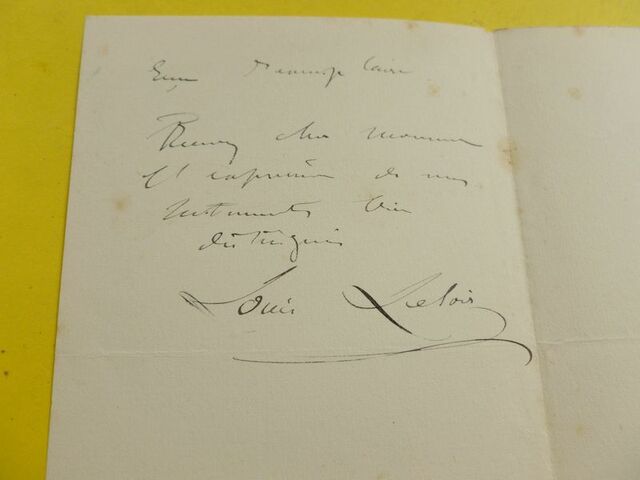 Recevez cher monsieur
l'expression de mes
sentiments bien
distingués
Louis Leloir